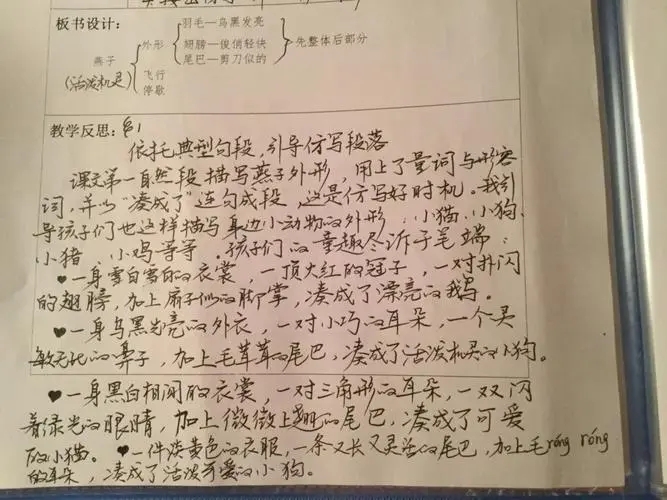 板书设计:
羽毛—乌黑发亮
外形 翅膀—俊俏轻快 先整体后部分
燕子 尾巴—剪刀似的
(活泼机灵) 飞行
停歇
教学反思:
依托典型句段,引导仿写段落
课文第一自然段描写燕子外形,用上了量词与形容
词,并以“凑成了”连句成段,这是仿写好时机。我引
导孩子们也这样描写身边小动物的外形:小猫、小狗、
小猪、小鸡等等。孩子们的童趣尽诉于笔端:
♥一身雪白雪白的衣裳,一顶火红的冠子,一对扑闪
的翅膀,加上扇子似的脚掌,凑成了漂亮的我

♥一身乌黑光亮的外衣,一对小巧的耳朵,一个灵
敏无比的鼻子,加上毛茸茸的尾巴,凑成了活泼机灵的小狗。
♥一身黑白相间的衣裳,一对三角形的耳朵,一双闪
着绿光的眼睛,加上微微上翘的尾巴,凑成了可爱
的小猫。♥一件淡黄色的衣服,一条又长又灵活的尾巴,加上毛róng róng
的耳朵,凑成了活泼可爱的小狗。